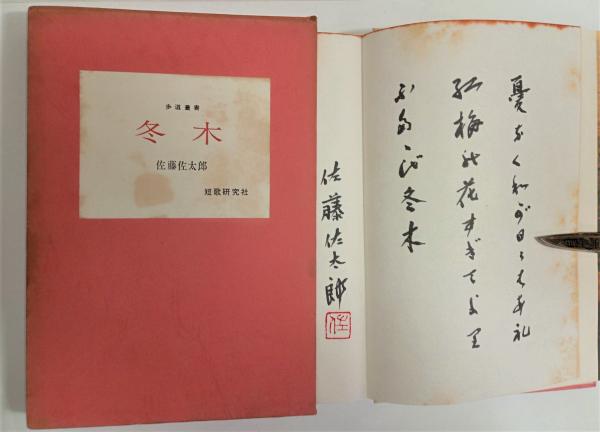 歩道叢書
冬木
佐藤佐太郎
短歌研究社
憂なくわが日々はあれ
紅梅の花すぎてより
ふたたび冬木
佐藤佐太郎
佐